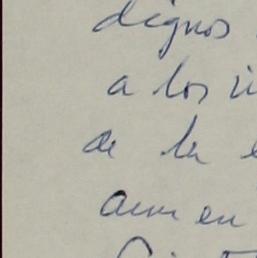 dignos
a los
de la
aun en